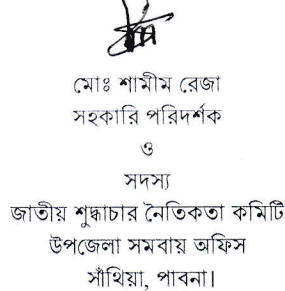 মোঃ শামীম রেজা
সহকারি পরিদর্শক
ও
সদস্য
জাতীয় শুদ্ধাচার নৈতিকতা কমিটি
উপজেলা সমবায় অফিস
সাঁথিয়া, পাবনা।